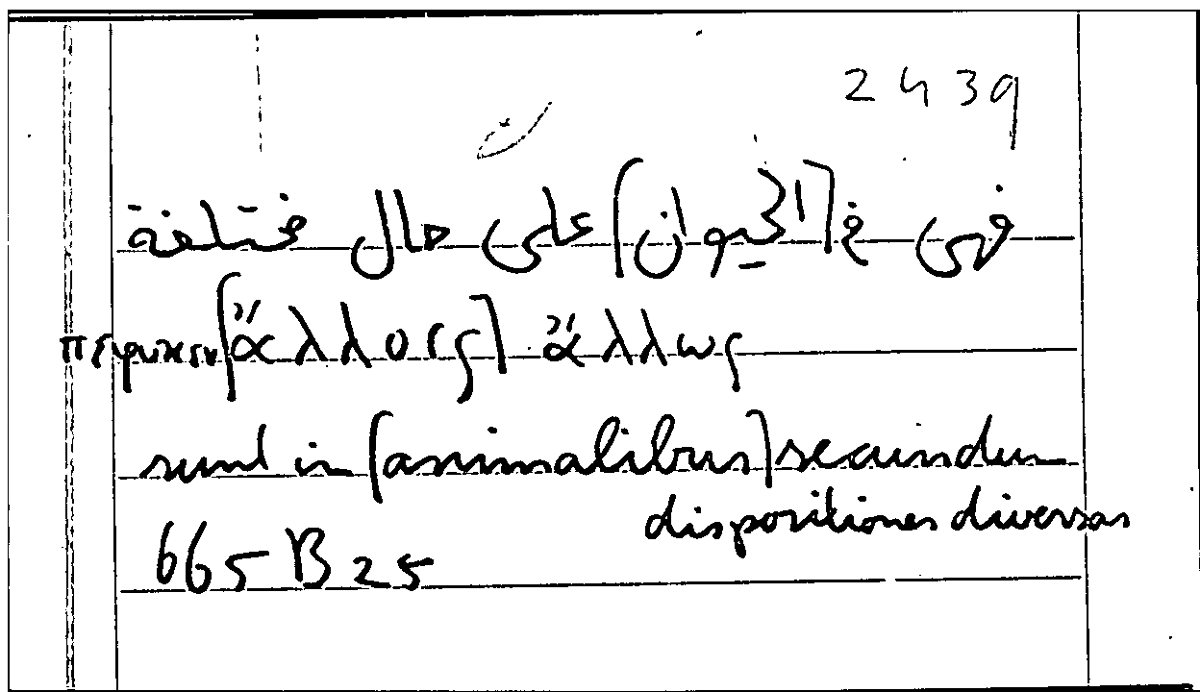 2439
فى [الحيوان] على حال مختلفة
πέφυκεν [ἄλλοις] ἄλλως
sunt in [animalibus] secundum
dispositiones diversas
665 B 25